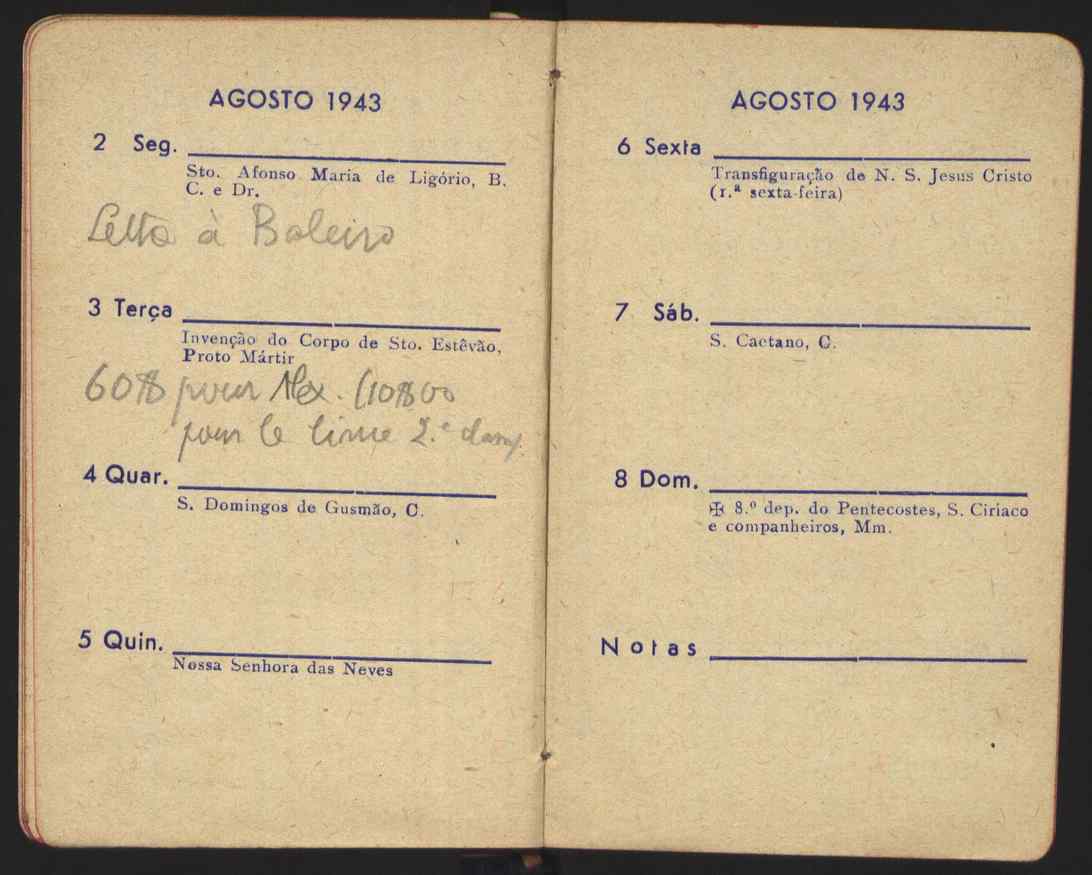 AGOSTO 1943
2 Seg.
Sto. Afonso Maria de Ligório, B.
C. e Dr.
à
3 Terça
Invenção do Corpo de Sto. Estêvão,
Proto Mártir
60$ pour Alex. (10$00
pour le livre 2.e
4 Quar.
S. Domingos de Gusmão, C.
5 Quin.
Nossa Senhora das Neves
AGOSTO 1943
6 Sexta
Transfiguração de N. S. Jesus Cristo
(1.ª sexta-feira)
7 Sáb.
S. Caetano, C.
8 Dom.
✠ 8.º dep. do Pentecostes, S. Ciriaco
e companheiros, Mm.
Notas